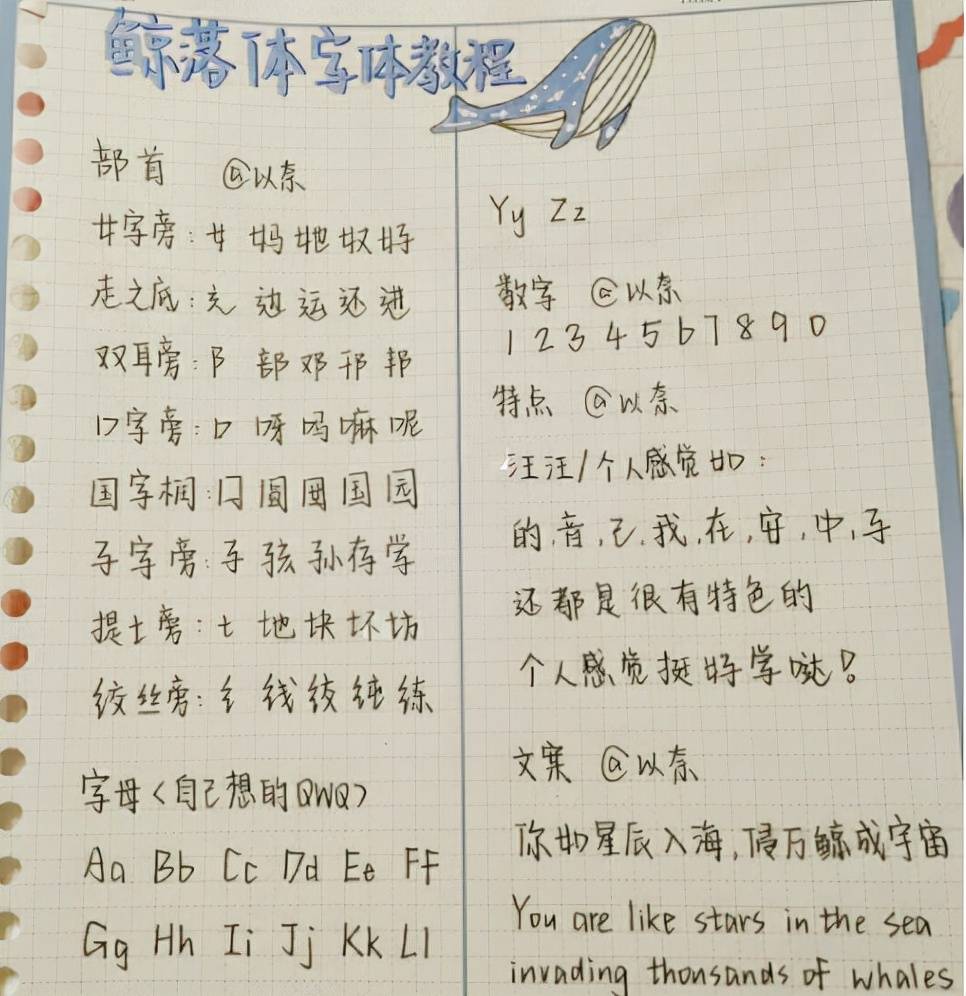 鲸落体字体教程
部首 @以奈
女字旁：女 妈 她 奴 好
走之底：辶 边 运 还 进
双耳旁：阝 部 邓 邗 邦
口字旁：口 呀 吗 嘛 呢
国字框：囗 圆 国 园
子字旁：子 孩 孙 存 学
提土旁：土 地 块 坏 坊
绞丝旁：纟 线 绞 纯 练
字母<自己想的QWQ>
Aa Bb Cc Dd Ee Ff
Gg Hh Ii Jj Kk Ll
Yy Zz
数字 @以奈
1 2 3 4 5 6 7 8 9 0
特点 @以奈
汪汪/个人感觉如：
的,音,己,我,在,安,中,子
还都是很有特色的
个人感觉挺好学哒！
文案 @以奈
你如星辰入海,侵万鲸成宇宙
You are like stars in the sea
invading thousands of whales